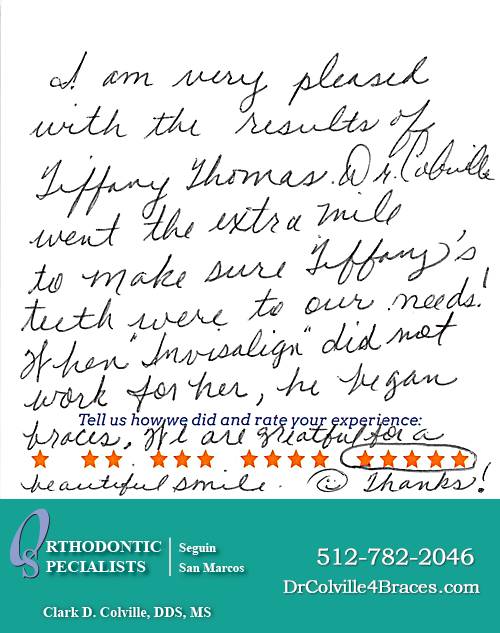 I am very pleased
with the results of
Tiffany Thomas. Dr. Colville
went the extra mile
to make sure Tiffany's
teeth were to our needs!
When "Invisalign" did not
work for her, he began
Tell us how we did and rate your experience:
braces. We are greatful for a
beautiful smile. Thanks!
ORTHODONTIC
SPECIALISTS
Seguin
San Marcos
512-782-2046
DrColville4Braces.com
Clark D. Colville, DDS, MS